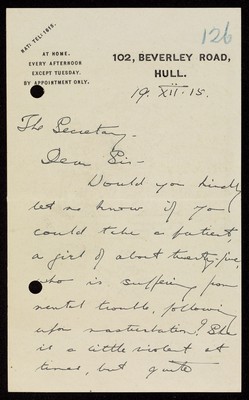 126
NATL. TELE. 1815.
AT HOME.
EVERY AFTERNOON
EXCEPT TUESDAY.
BY APPOINTMENT ONLY.
102, BEVERLEY ROAD,
HULL.
19. XII. 15.
The Secretary.
Dear Sir -
Would you kindly
let me know if you
could take a patient,
a girl of about twenty-five,
who is suffering from
mental trouble, following
upon masturbation? She
is a little violent at
times, but quite